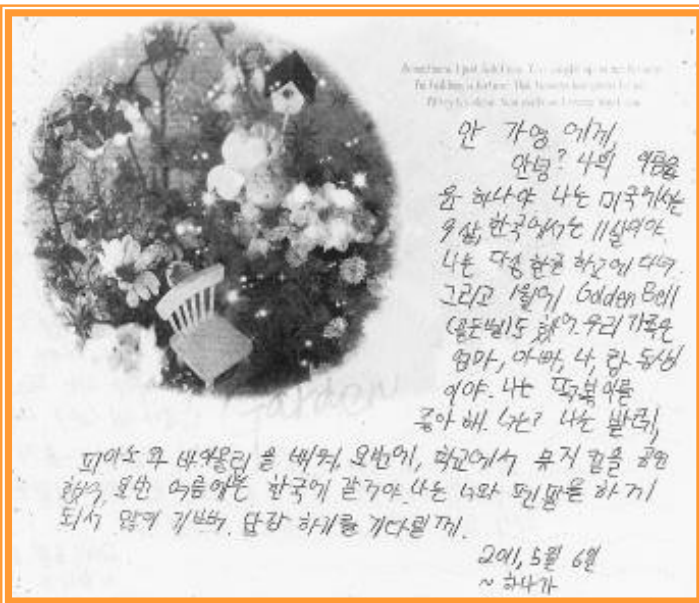 안 가영 에게,
안녕? 나의 이름은
윤 하나야 나는 미국에서는
9살, 한국에서는 11살이야.
나는 다솜 한글 학교에 다녀.
그리고 1월에 Golden Bell
(골든벨)도 했어. 우리 가족은
엄마, 아빠, 나, 랑 동생
이야. 나는 떡볶이를
좋아 해. 너는? 나는 발레,
피아노 와 바이올린 을 배워, 요번에, 학교에서 뮤지컬을 공연
했어, 요번 여름에는 한국에 갈거야. 나는 너와 펜팔을 하게
되서 많이 기뻐. 답장 하기를 기다릴께.
2011, 5월 6일
~ 하나가
Garden